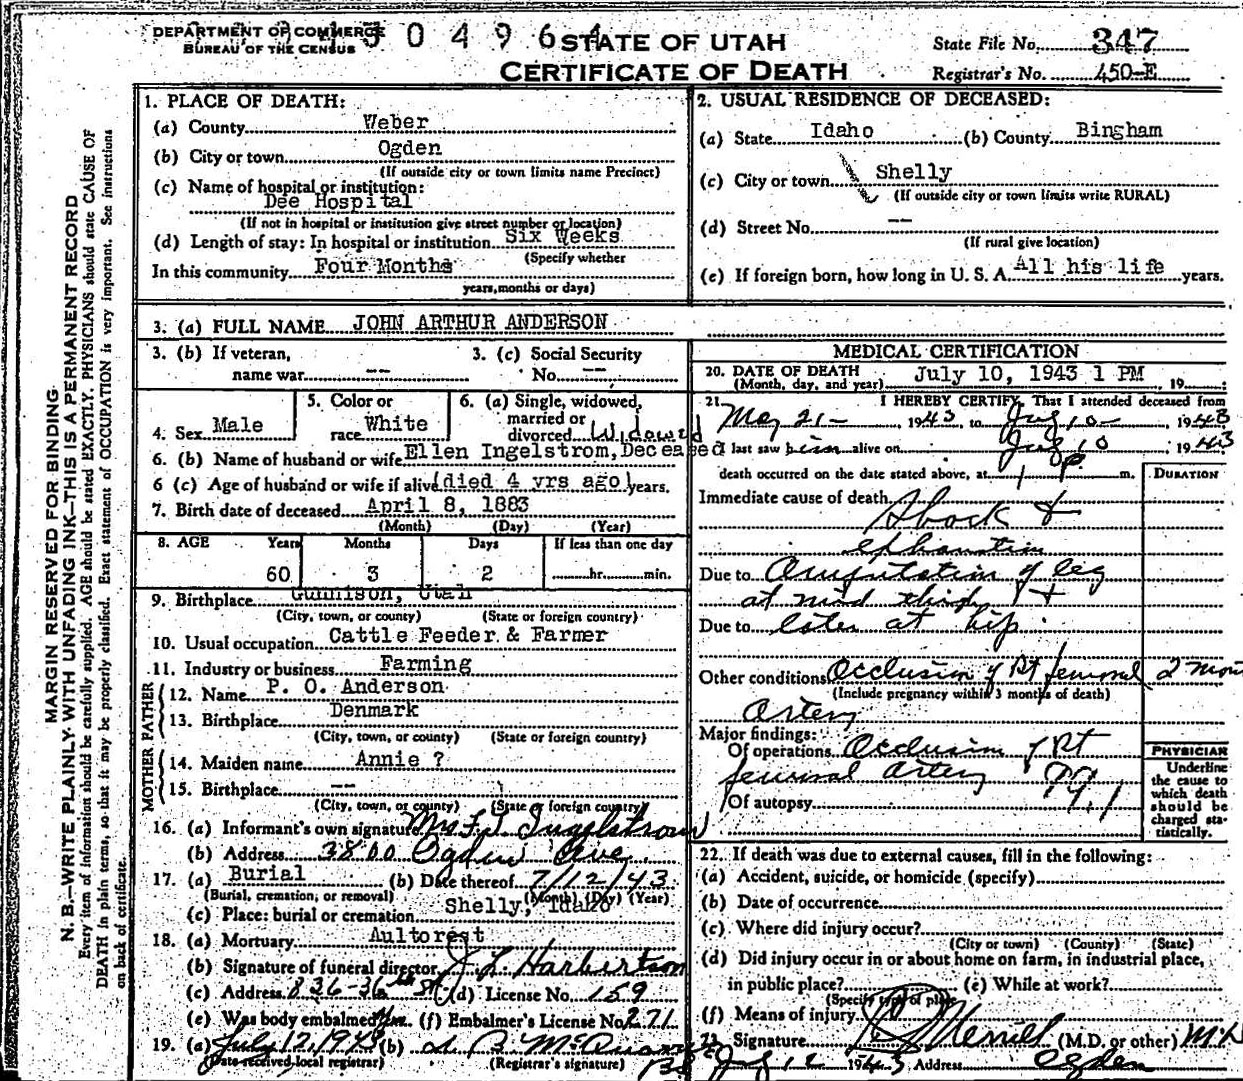 DEPARTMENT OF COMMERCE
BUREAU OF THE CENSUS
0 4 9 6 4
STATE OF UTAH
CERTIFICATE OF DEATH
State File No. 347
Registrar's No. 450-E
MARGIN RESERVED FOR BINDING
N. B.—WRITE PLAINLY WITH UNFADING INK—THIS IS A PERMANENT RECORD
Every item of information should be carefully supplied. AGE should be stated EXACTLY. PHYSICIANS should state CAUSE OF
DEATH in plain terms, so that it may be properly classified. Exact statement of OCCUPATION is very important. See instructions
on back of certificate.
1. PLACE OF DEATH:
(a) County Weber
(b) City or town Ogden
(If outside city or town limits name Precinct)
(c) Name of hospital or institution:
Dee Hospital
(If not in hospital or institution give street number or location)
(d) Length of stay: In hospital or institution Six Weeks
(Specify whether
In this community Four Months
years, months or days)
2. USUAL RESIDENCE OF DECEASED:
(a) State Idaho (b) County Bingham
(c) City or town Shelly
(If outside city or town limits write RURAL)
(d) Street No. --
(If rural give location)
(e) If foreign born, how long in U. S. A. All his life years.
3. (a) FULL NAME JOHN ARTHUR ANDERSON
3. (b) If veteran,
name war --
3. (c) Social Security
No. --
4. Sex Male
5. Color or
race White
6. (a) Single, widowed,
married or
divorced Widowed
6. (b) Name of husband or wife Ellen Ingelstrom, Deceased
6 (c) Age of husband or wife if alive (died 4 yrs ago) years.
7. Birth date of deceased April 8, 1883
(Month) (Day) (Year)
8. AGE Years Months Days If less than one day
60 3 2 hr. min.
9. Birthplace Gunnison, Utah
(City, town, or county) (State or foreign country)
10. Usual occupation Cattle Feeder & Farmer
11. Industry or business Farming
FATHER
12. Name P. O. Anderson
13. Birthplace Denmark
(City, town, or county) (State or foreign country)
MOTHER
14. Maiden name Annie ?
15. Birthplace --
(City, town, or county) (State or foreign country)
16. (a) Informant's own signature Mrs F. L. Ingelstrom
(b) Address 3800 Ogden Ave.
17. (a) Burial (b) Date thereof 7/12/43
(Burial, cremation, or removal) (Month) (Day) (Year)
(c) Place: burial or cremation Shelly, Idaho
18. (a) Mortuary Aultorest
(b) Signature of funeral director J. L. Harbertson
(c) Address 836-36th St (d) License No. 159
(e) Was body embalmed Yes (f) Embalmer's License No. 271
19. (a) July 12, 1943 (b)
(Date received local registrar) (Registrar's signature)
MEDICAL CERTIFICATION
20. DATE OF DEATH
(Month, day, and year) July 10, 1943 1 PM, 19
21. I HEREBY CERTIFY, That I attended deceased from
May 21- 1943, to July 10- 1943
I last saw him alive on July 10 1943
death occurred on the date stated above, at 1 P m.
DURATION
Immediate cause of death
Shock &
exhaustion
Due to Amputation of leg
at mid thigh &
Due to later at hip.
Other conditions Occlusion of Rt femoral 2 mont
(Include pregnancy within 3 months of death)
Artery
Major findings:
Of operations Occlusion of Rt
femoral artery 99.1
Of autopsy
PHYSICIAN
Underline
the cause to
which death
should be
charged sta-
tistically.
22. If death was due to external causes, fill in the following:
(a) Accident, suicide, or homicide (specify)
(b) Date of occurrence
(c) Where did injury occur?
(City or town) (County) (State)
(d) Did injury occur in or about home on farm, in industrial place,
in public place? (e) While at work?
(Specify type of place)
(f) Means of injury
23. Signature Merrill (M.D. or other) M.D.
July 12 1943 Address Ogden